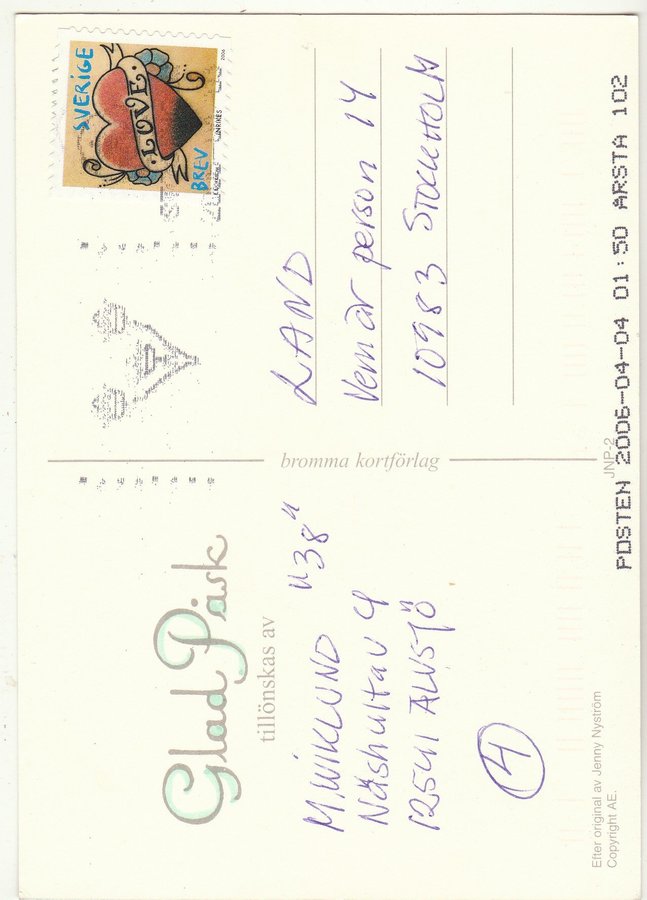 SVERIGE
LOVE
BREV
INRIKES
2006
Glad Påsk
tillönskas av
M. WIKLUND "38"
Näshultav 4
12541 ÄLVSJÖ
4
Efter original av Jenny Nyström
Copyright AE.
bromma kortförlag
JNP-2
LAND
Vem är person 14
10983 STOCKHOLM
POSTEN 2006-04-04 01:50 ARSTA 102